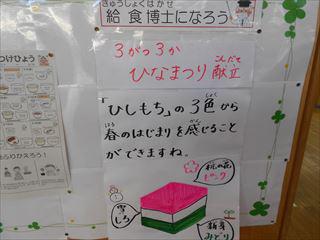 きゅうしょくはかせ
給食博士になろう
3がつ3か
こんだて
ひなまつり献立
「ひしもち」の3色から
しょく
はる
かん
春のはじまりを感じること
ができますね。
桃の花
ピンク
雪
しろ
新芽
みどり